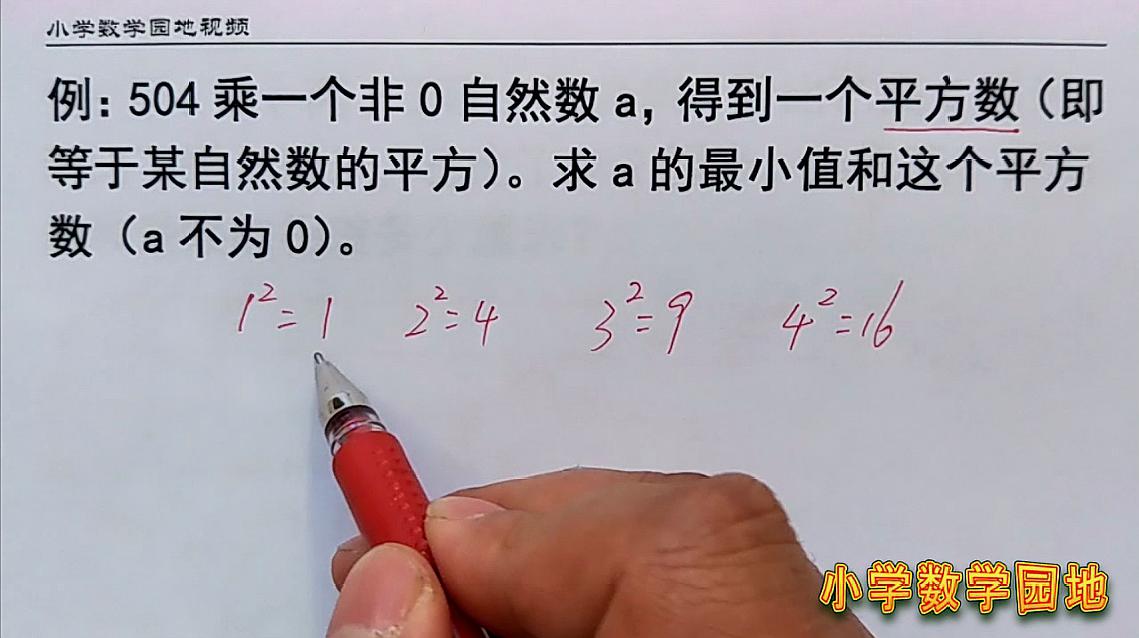 小学数学园地视频
例：504 乘一个非 0 自然数 a，得到一个平方数（即
等于某自然数的平方）。求 a 的最小值和这个平方
数（a 不为 0）。
1²=1 2²=4 3²=9 4²=16
小学数学园地